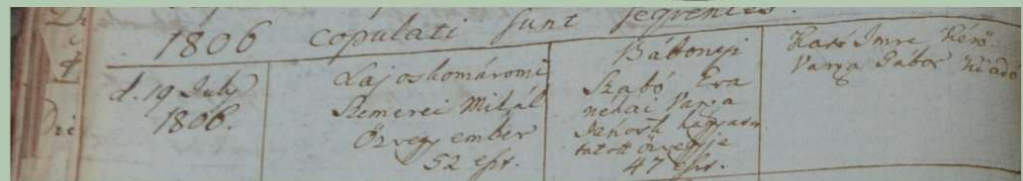 1806 copulati sunt seqventes.
d. 19 July
1806.
Lajoskomáromi
Szemerei Mihál
Özvegy ember
52 eszt.
Bábonyi
Szabó Eva
néhai Varga
Janosh
tatott özvegyje
47 eszt.
Kasó Imre Kérő
Varga Gábor Kiadó